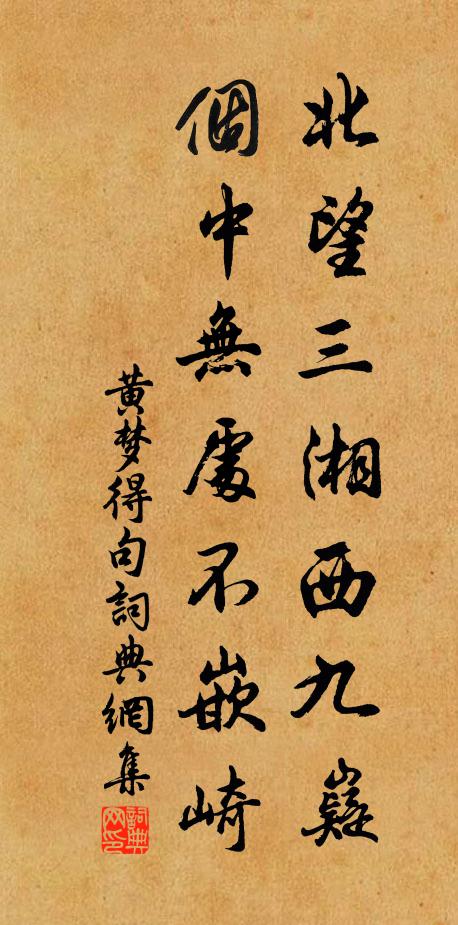 北望三湘西九嶷
個中無處不嵌崎
黄梦得句詞典網集
詞典网印